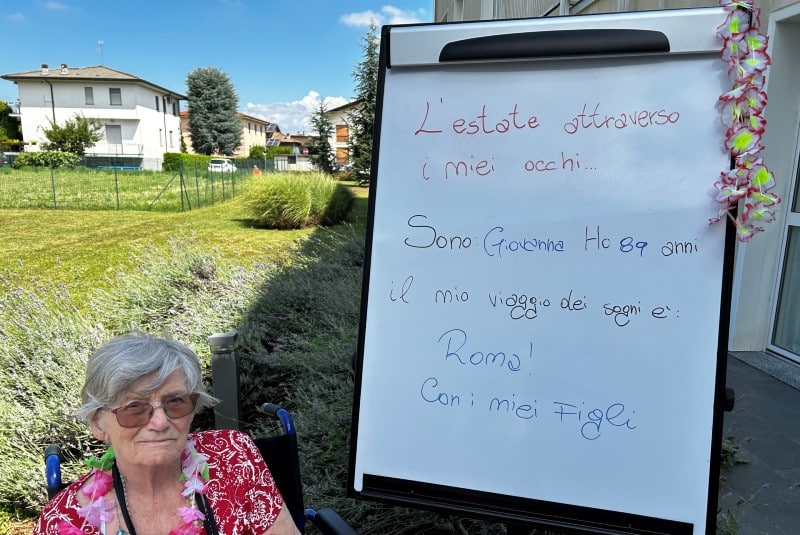 L'estate attraverso
i miei occhi...
Sono: Giovanna Ho 89 anni
il mio viaggio dei sogni è:
Roma!
Con i miei Figli